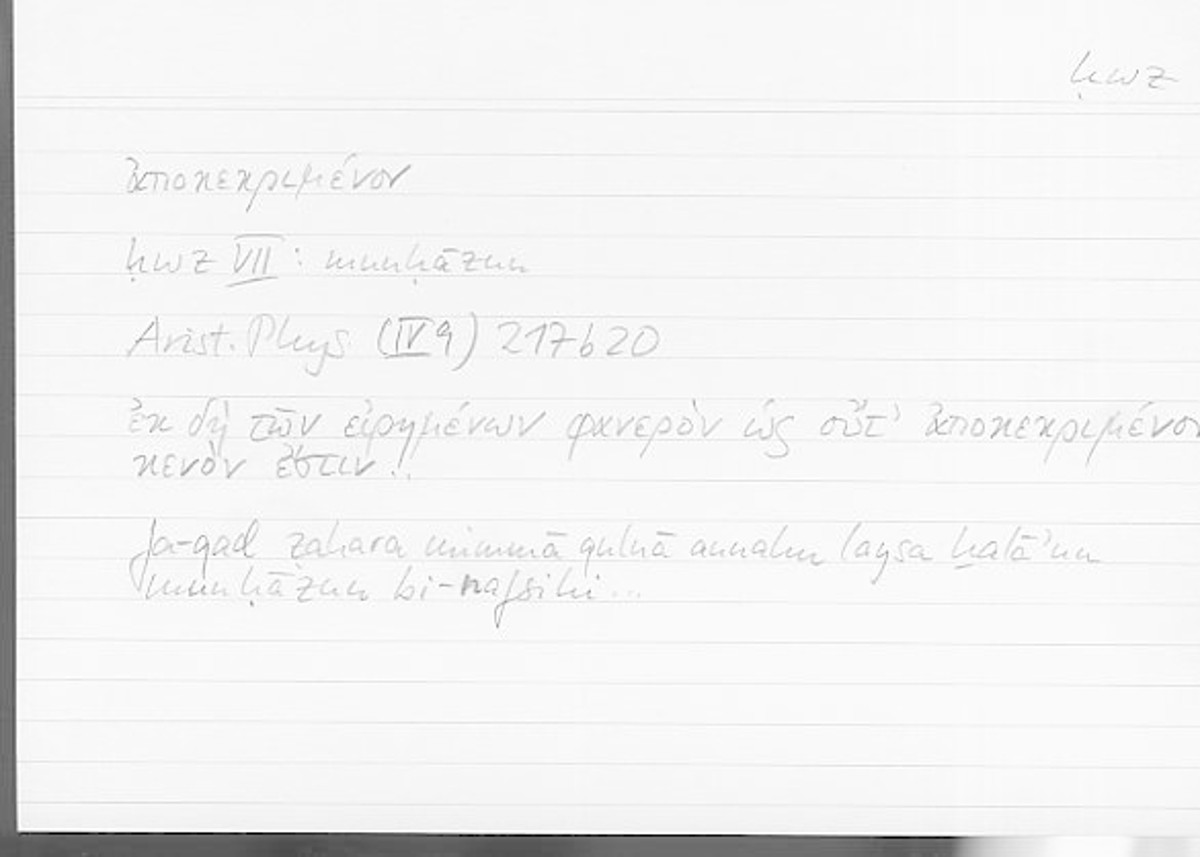 ḥwz
ἀποκεκριμένον
ḥwz VII: munḥāzun
Arist. Phys. (IV 9) 217b20
ἐκ δὴ τῶν εἰρημένων φανερὸν ὡς οὔτ' ἀποκεκριμένον
κενὸν ἔστιν..
fa-qad ẓahara mimmā qulnā annahu laysa ḫalāʾun
munḥāzun bi-nafsihi...